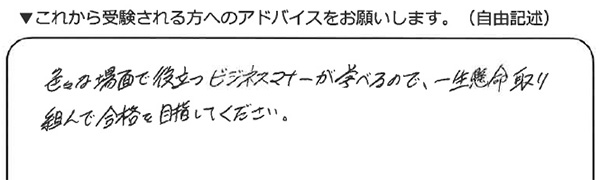 ▼これから受験される方へのアドバイスをお願いします。（自由記述）
色々な場面で役立つビジネスマナーが学べるので、一生懸命取り
組んで合格を目指してください。